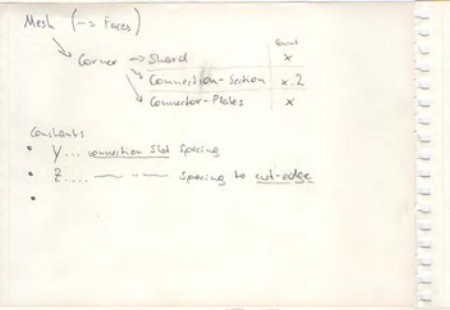 Mesh (-> Faces)
Count
Corner -> Shard x
Connection-Section x.2
Connector-Plates x
Constants
• Y... connection Slot spacing
• Z.... — " — spacing to cut-edge
•